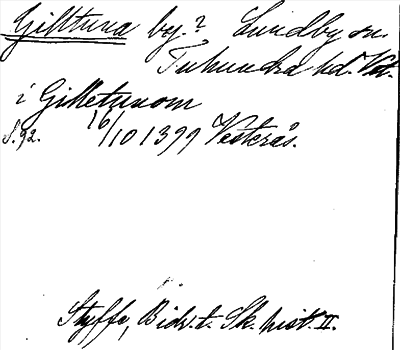 Gilltuna by.? Lundby sn.
Tuhundra hd. Vm.
i Gilletunom
S. 92. 16/10 1399 Vesterås.
Styffe, Bidr. t. Sk. hist. II.